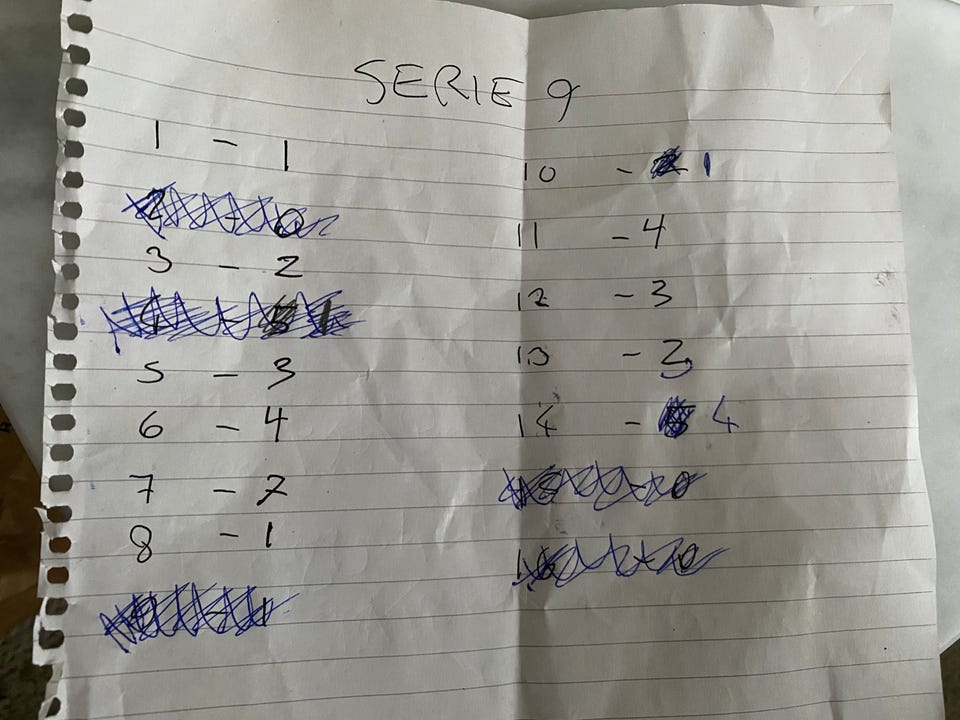 SERIE 9
1 - 1
3 - 2
5 - 3
6 - 4
7 - 2
8 - 1
10 - 1
11 - 4
12 - 3
13 - 2
14 - 4